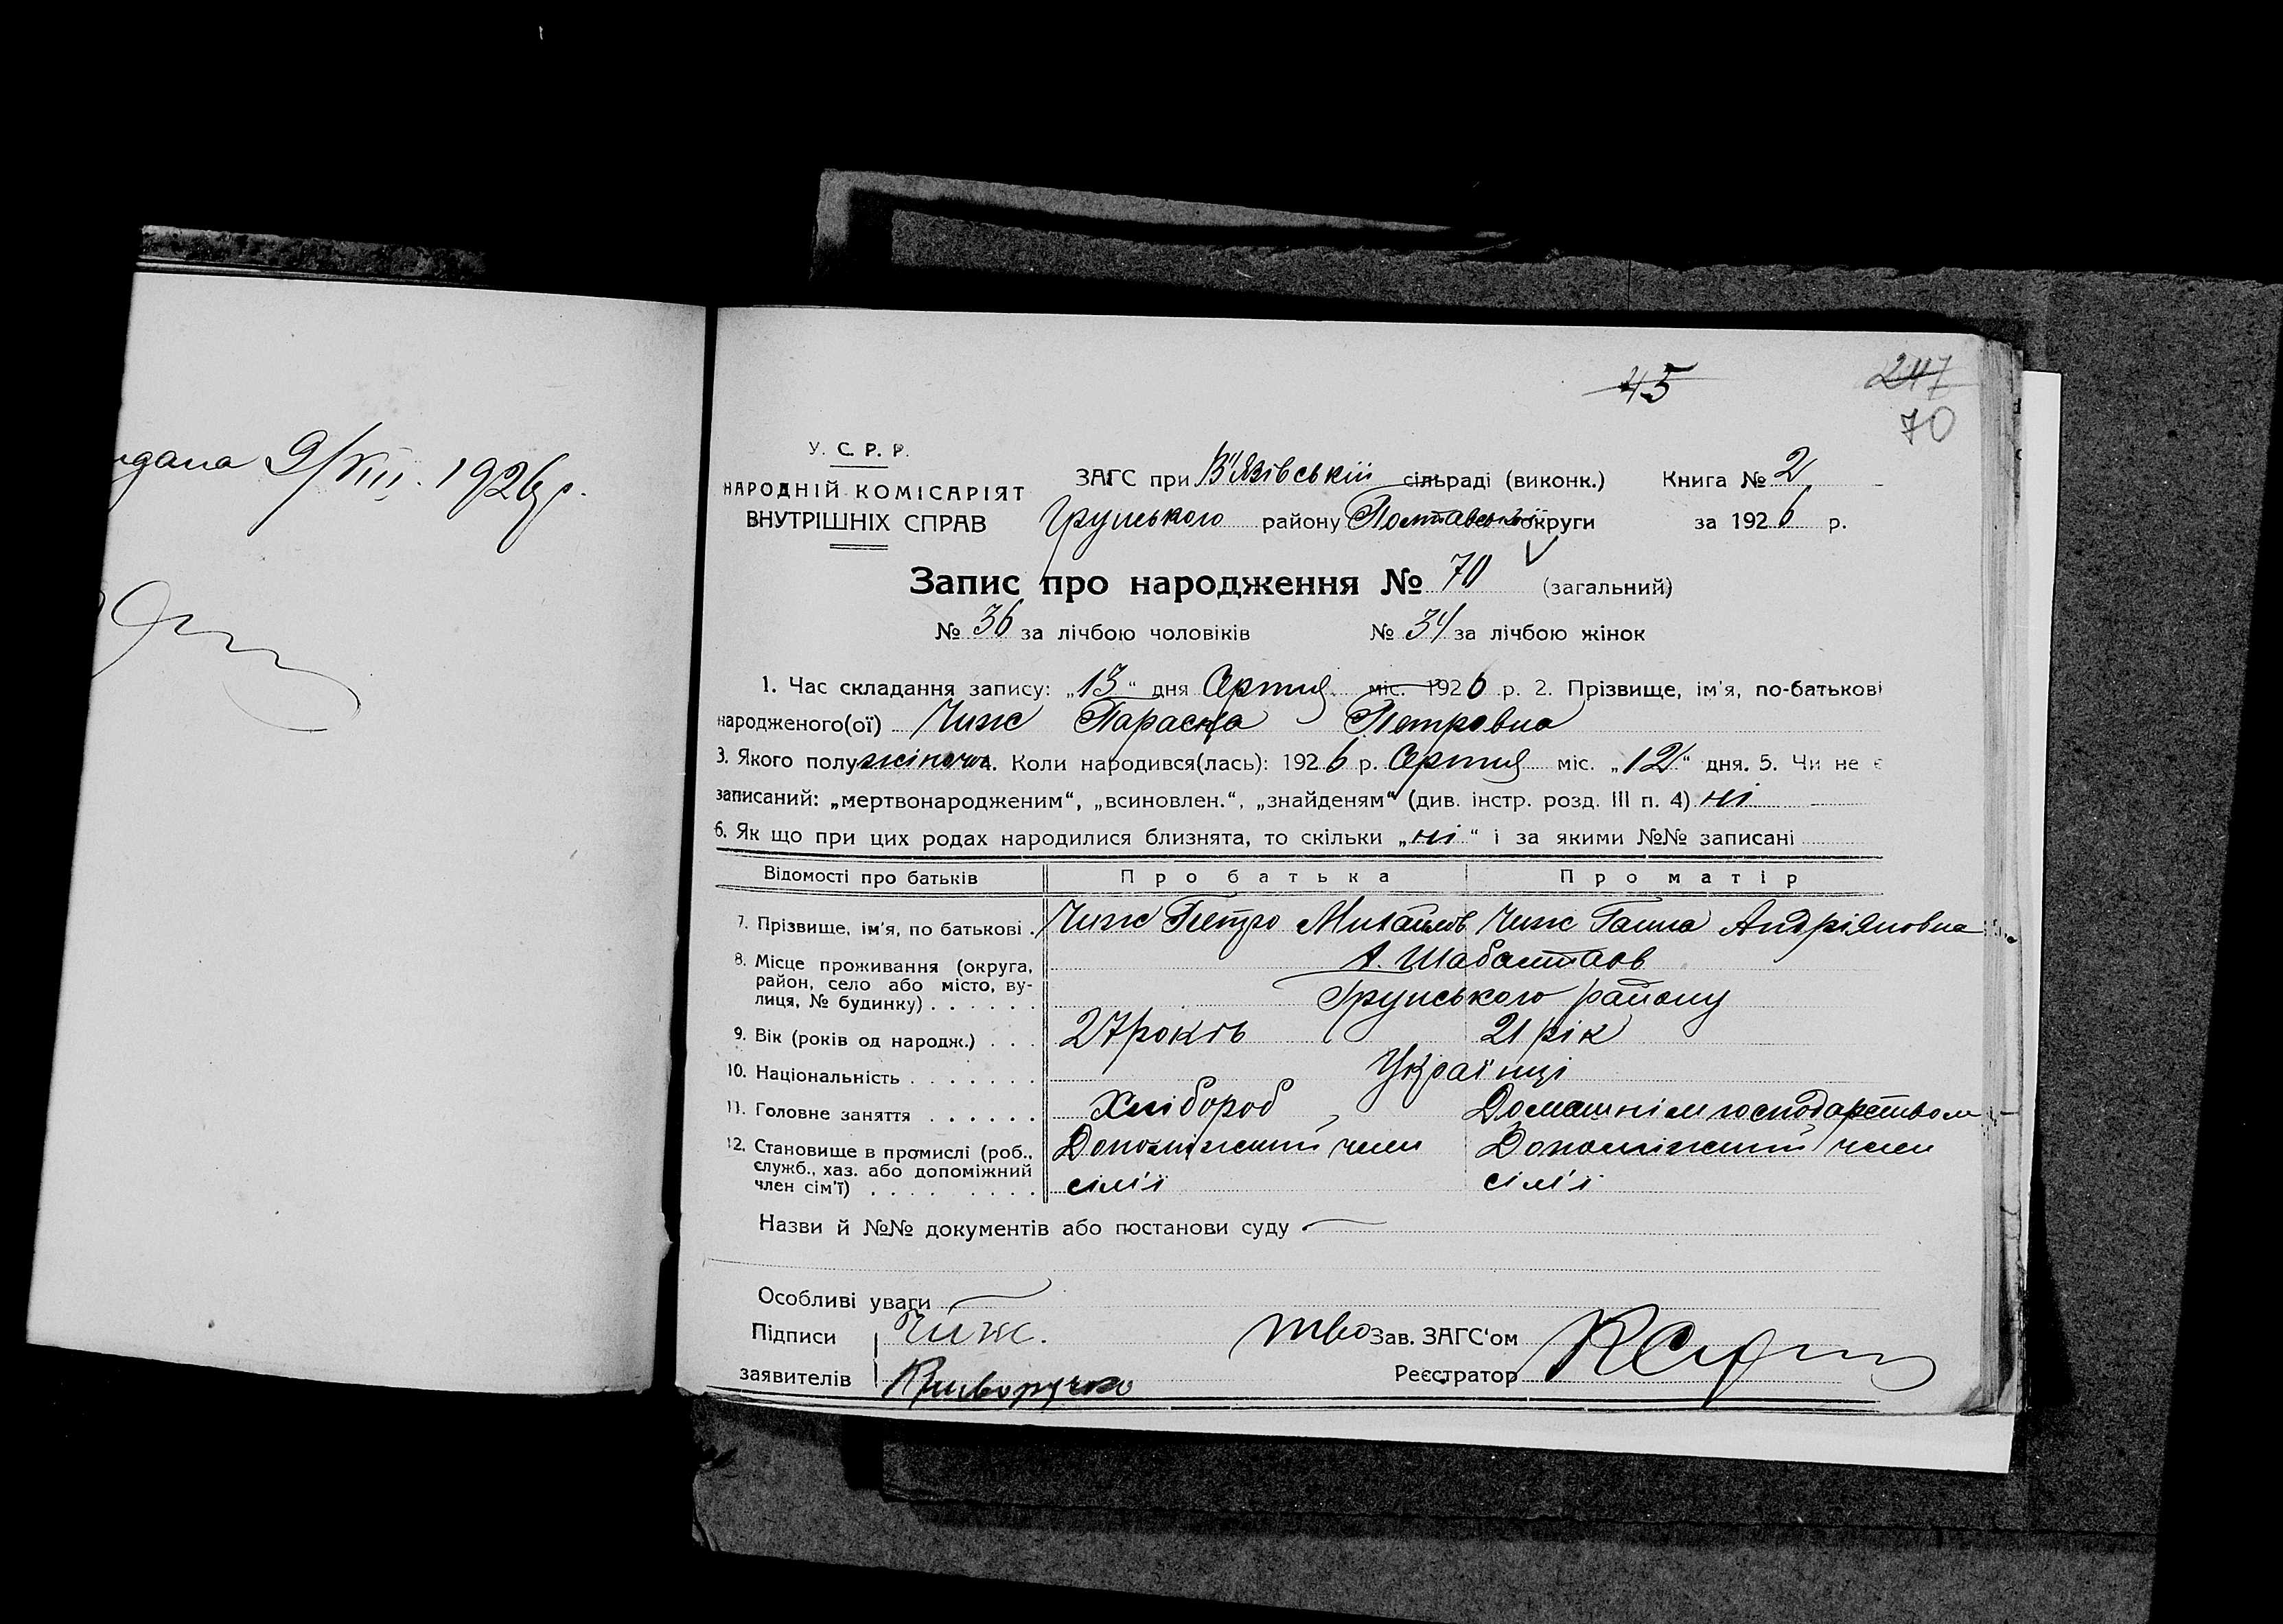 дана 9/VIII. 1926 р.
45
247
70
У. С. Р. Р.
НАРОДНІЙ КОМІСАРІЯТ
ВНУТРІШНІХ СПРАВ
ЗАГС при В'язівській сільраді (виконк.) Книга № 2
Грунського району Полтавської округи за 1926 р.
Запис про народження № 70 (загальний)
№ 36 за лічбою чоловіків № 34 за лічбою жінок
1. Час складання запису: „13“ дня Серпня міс. 1926 р. 2. Прізвище, ім'я, по-батькові
народженого(ої) Чиж Параска Петровна
3. Якого полу жіночо 4. Коли народився(лась): 1926 р. Серпня міс. „12“ дня. 5. Чи не є
записаний: „мертвонародженим“, „всиновлен.“, „знайденям“ (див. інстр. розд. III п. 4) ні
6. Як що при цих родах народилися близнята, то скільки „ні“ і за якими №№ записані
Відомості про батьків Про батька Про матір
7. Прізвище, ім'я, по батькові . Чиж Петро Михайлов Чиж Ганна Андріяновна
8. Місце проживання (округа, район, село або місто, вулиця, № будинку) . . . . . . х. Шабалтаєв
Грунського району
9. Вік (років од народж.) . . . 27 років 21 рік
10. Національність . . . . . . . Українці
11. Головне заняття . . . . . . Хлібороб Домашнім господарством
12. Становище в промислі (роб., служб., хаз. або допоміжний член сім'ї) . . . . . . . . . Допоміжний член сім'ї Допоміжний член сім'ї
Назви й №№ документів або постанови суду
Особливі уваги
Підписи Чиж. тво Зав. ЗАГС'ом
заявителів Криворучко Реєстратор